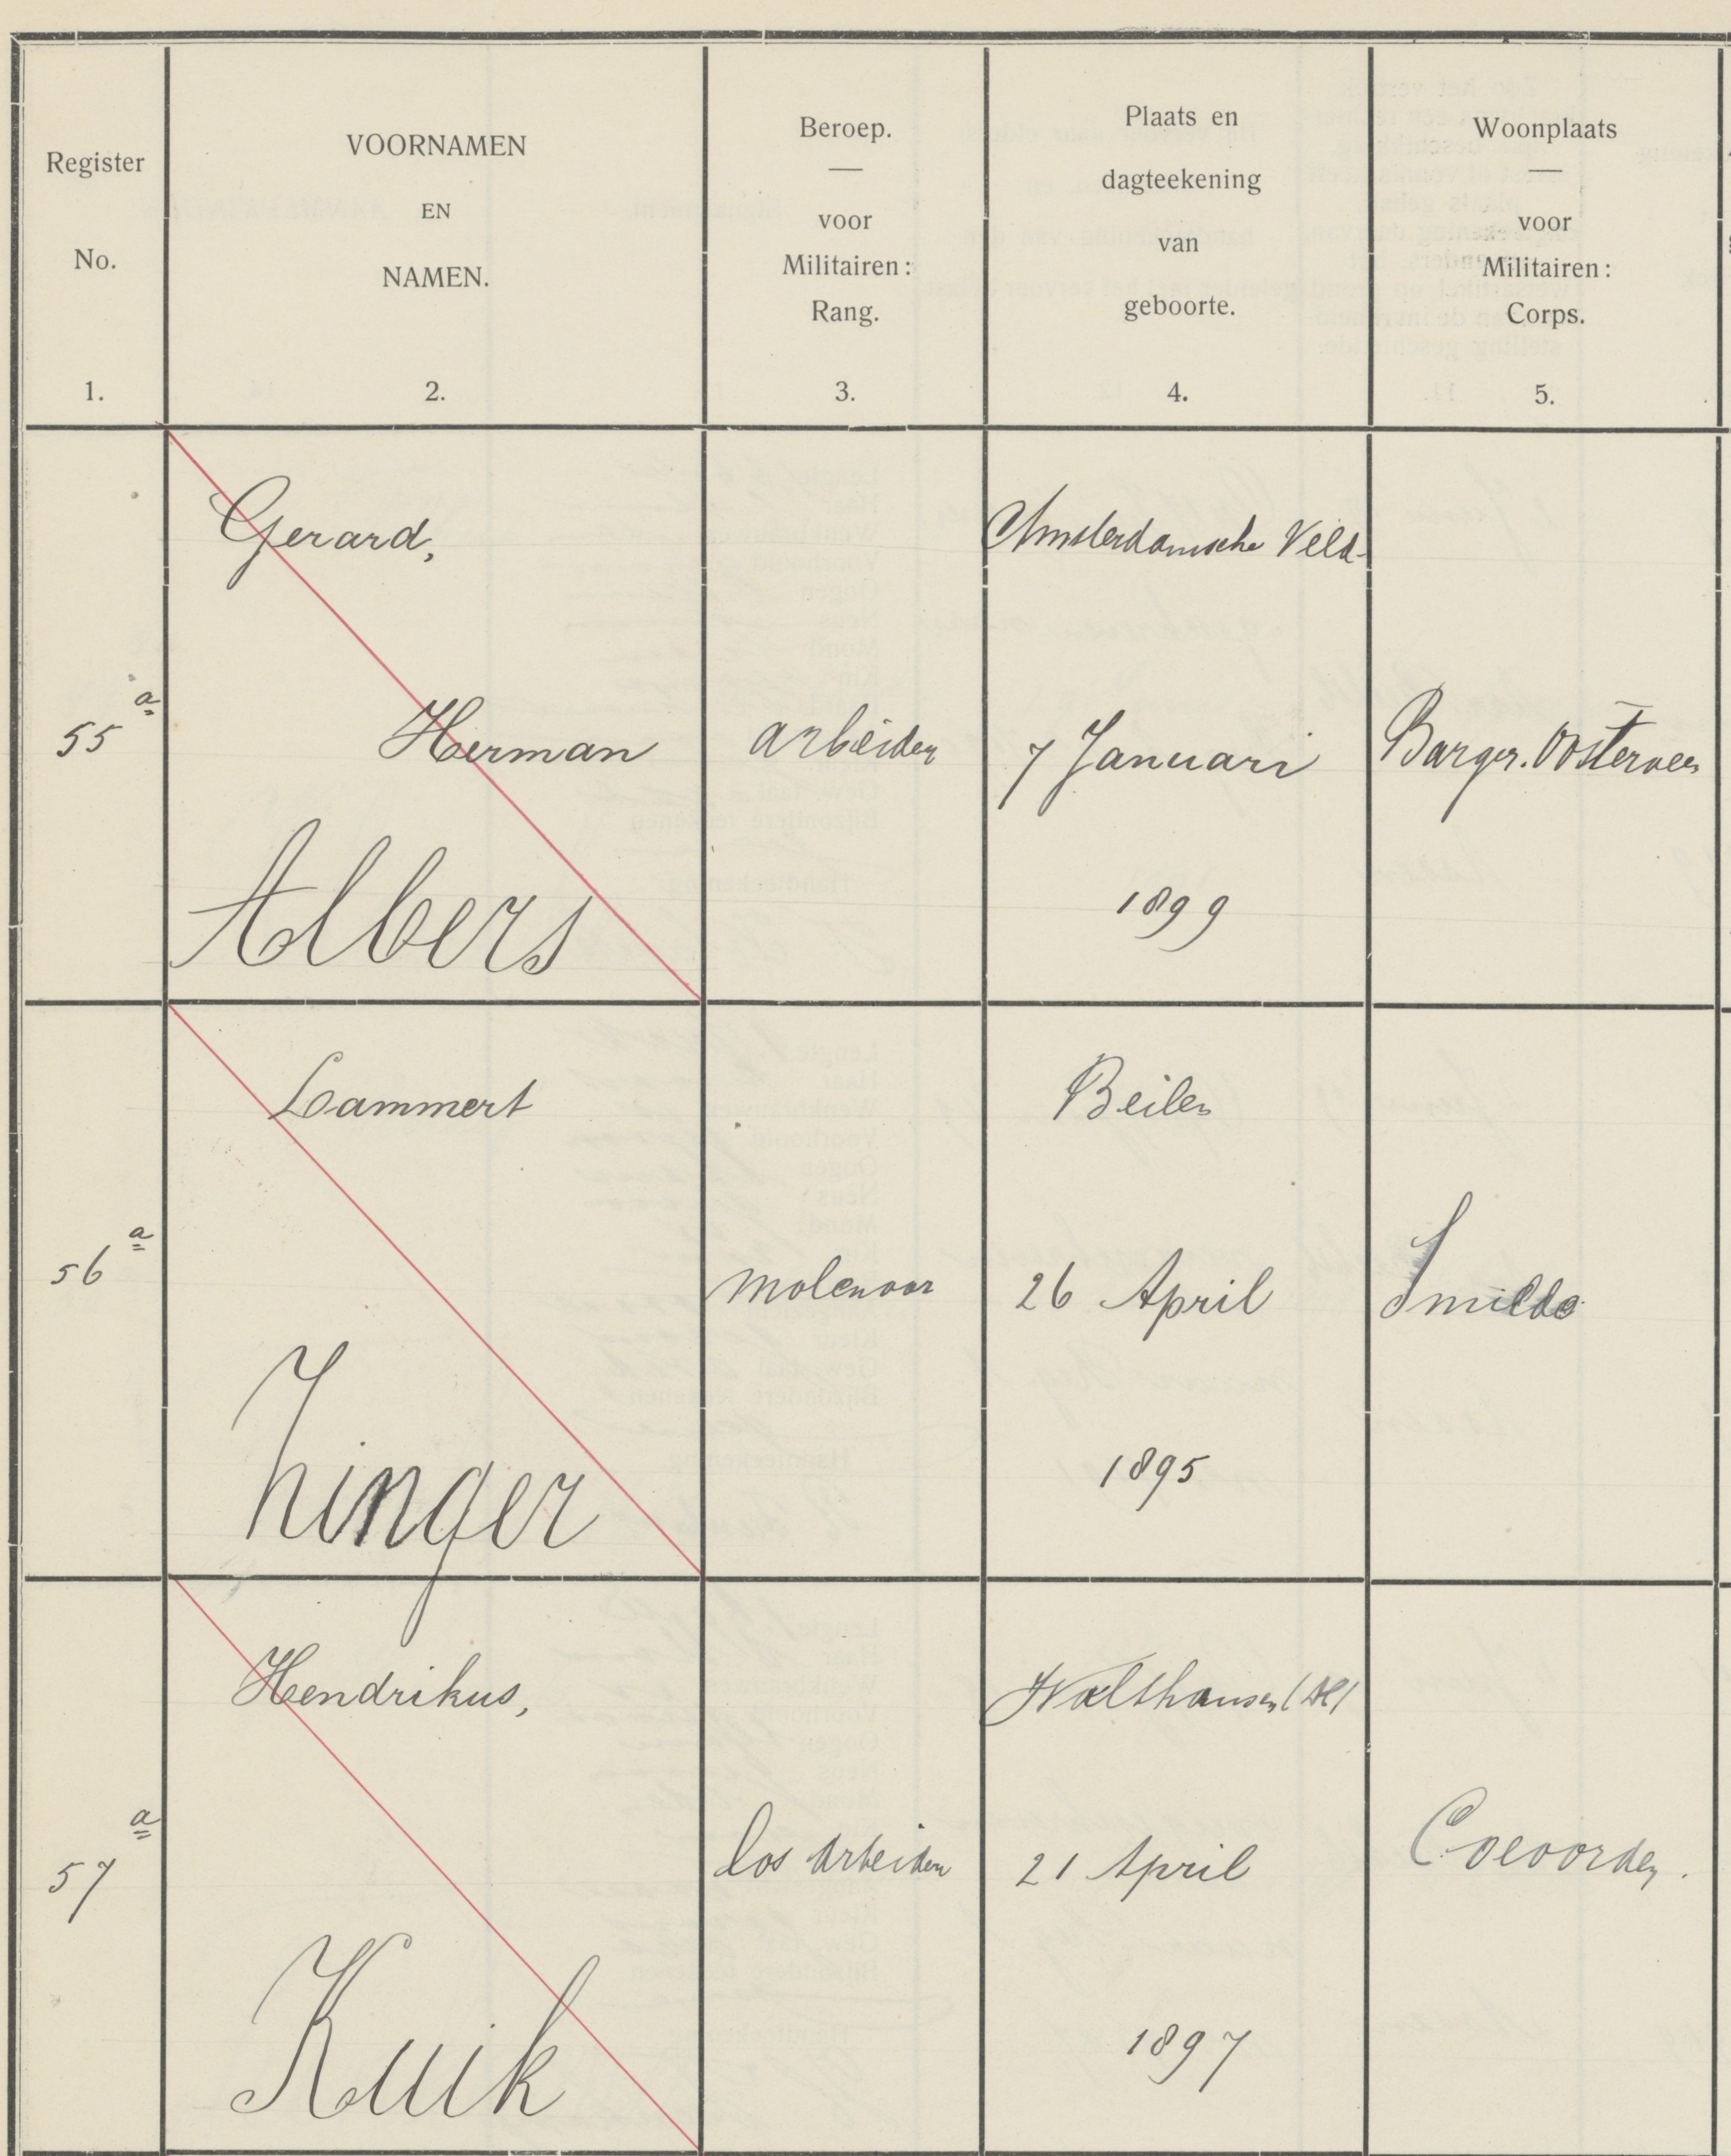 Register
No.
1.
VOORNAMEN
EN
NAMEN.
2.
Beroep.
—
voor
Militairen:
Rang.
3.
Plaats en
dagteekening
van
geboorte.
4.
Woonplaats
—
voor
Militairen:
Corps.
5.
55 a
Gerard,
Herman
Albers
arbeider
Amsterdamsche Veld
7 Januari
1899
Barger. Oosterveen
56 a
Lammert
Zinger
molenaar
Beilen
26 April
1895
Smilde
57 a
Hendrikus,
Kuik
los arbeider
21 April
1897
Coevorden.